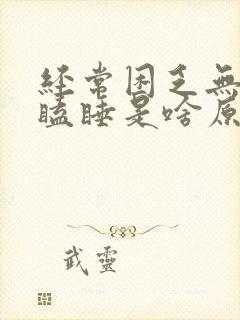 经常困乏無
瞌睡是啥原
武靈